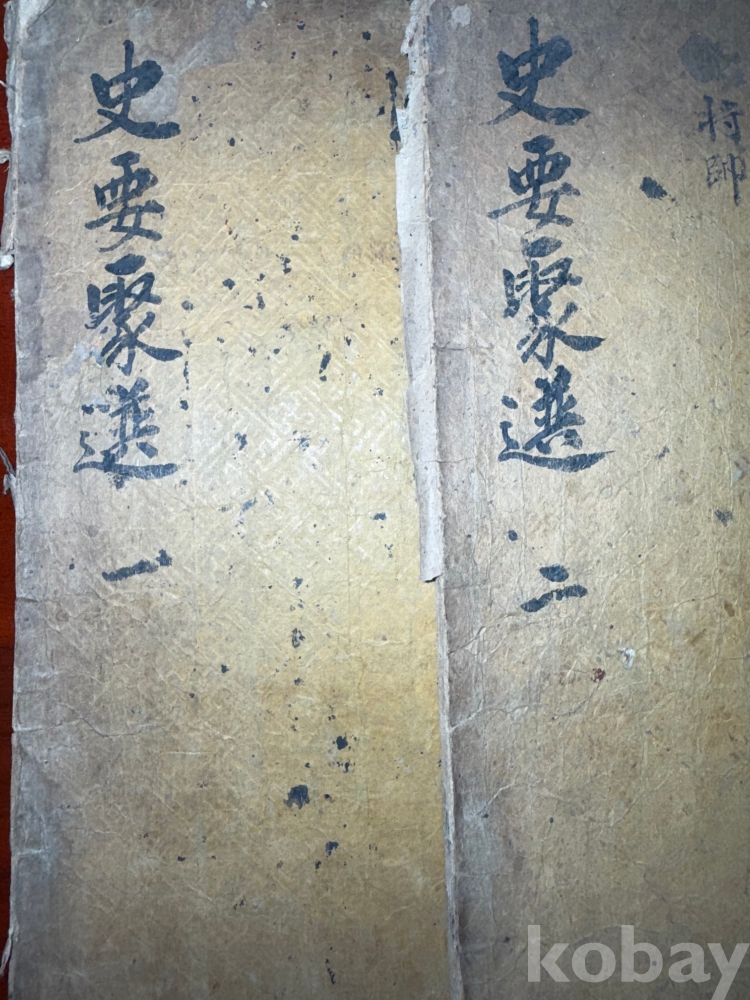 史要聚選 一
史要聚選 二
將帥
kobay